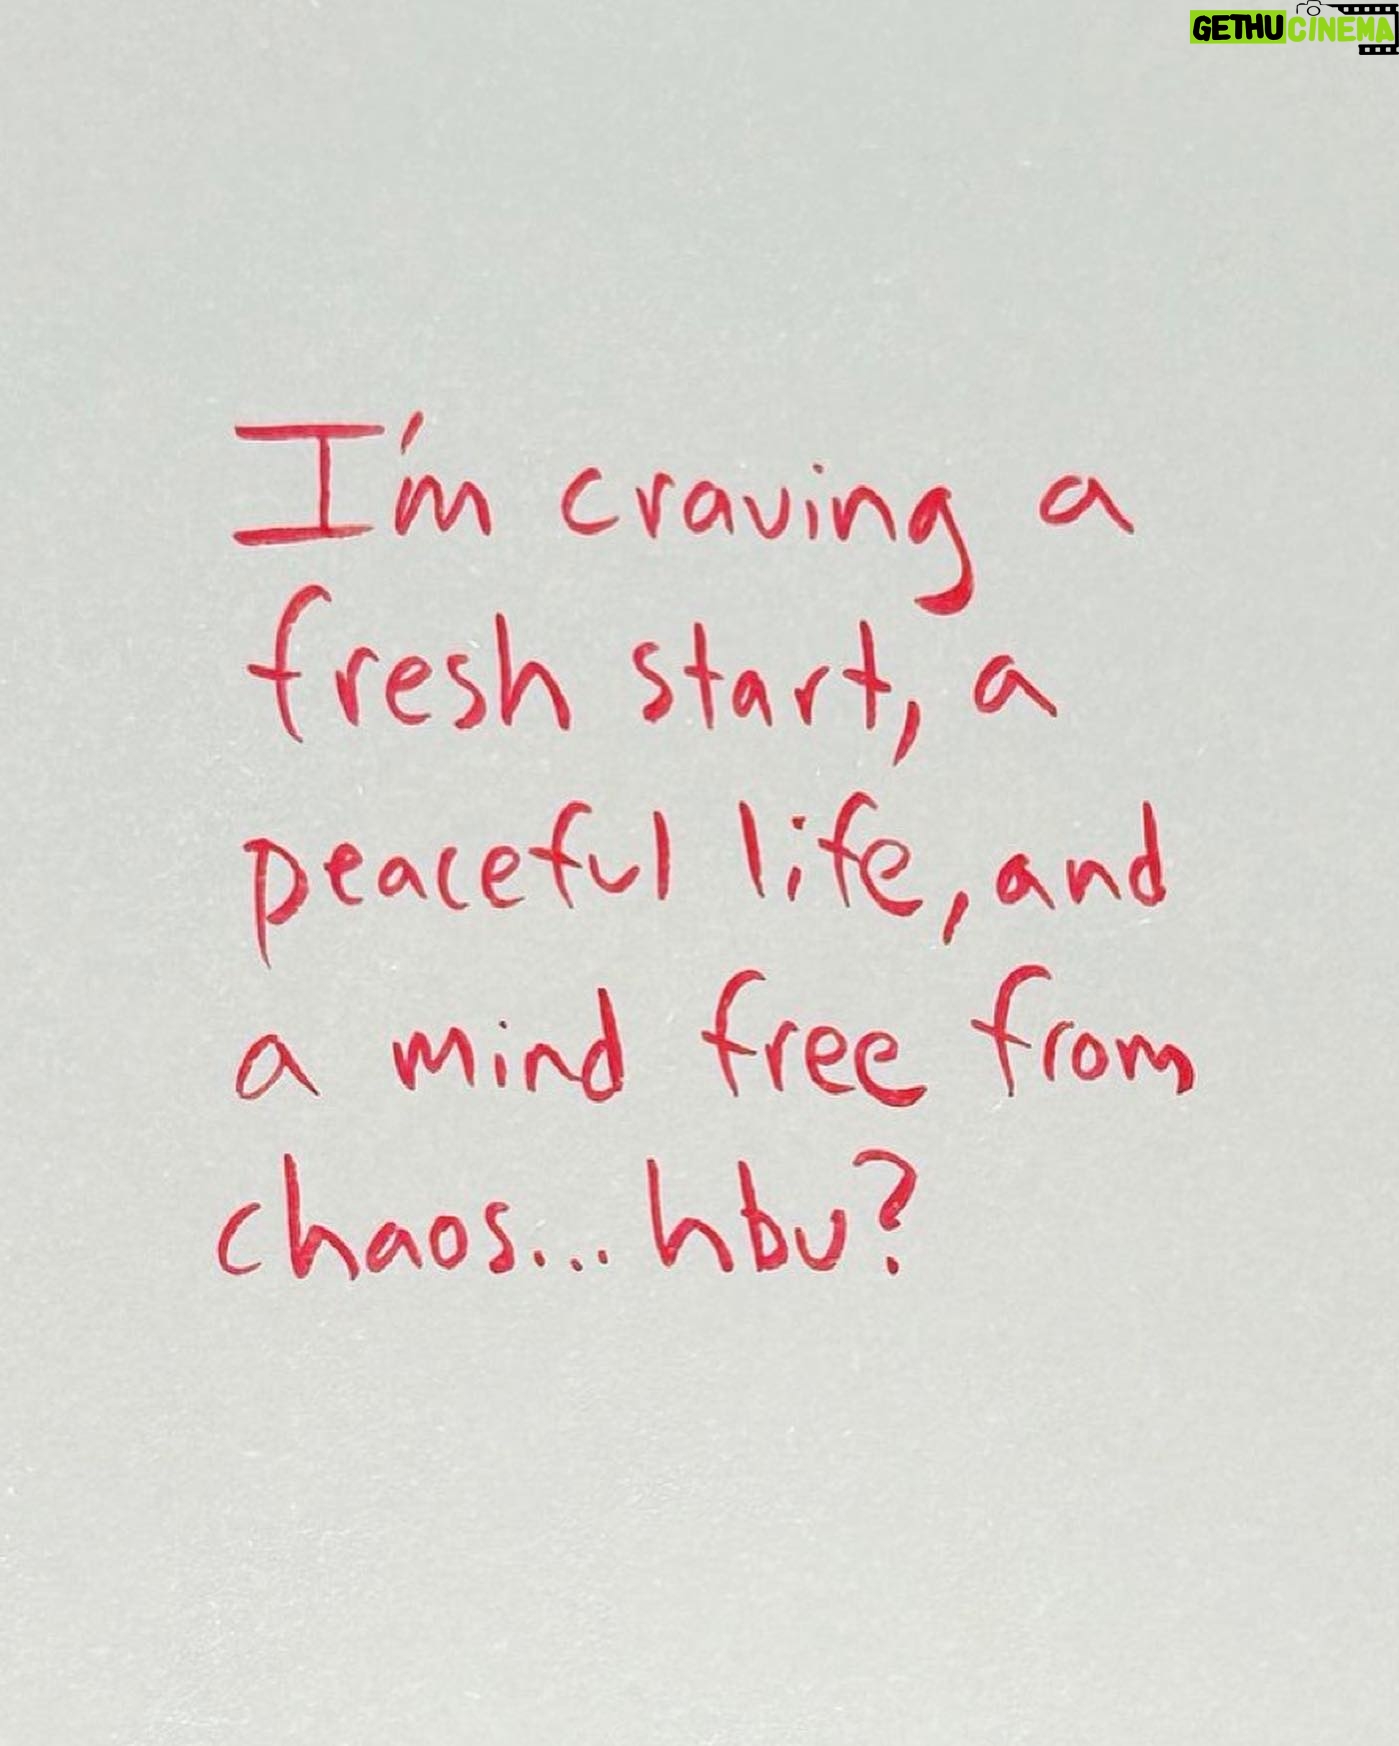 GETHUCINEMA
I'm craving a
fresh start, a
peaceful life, and
a mind free from
chaos... hbu?